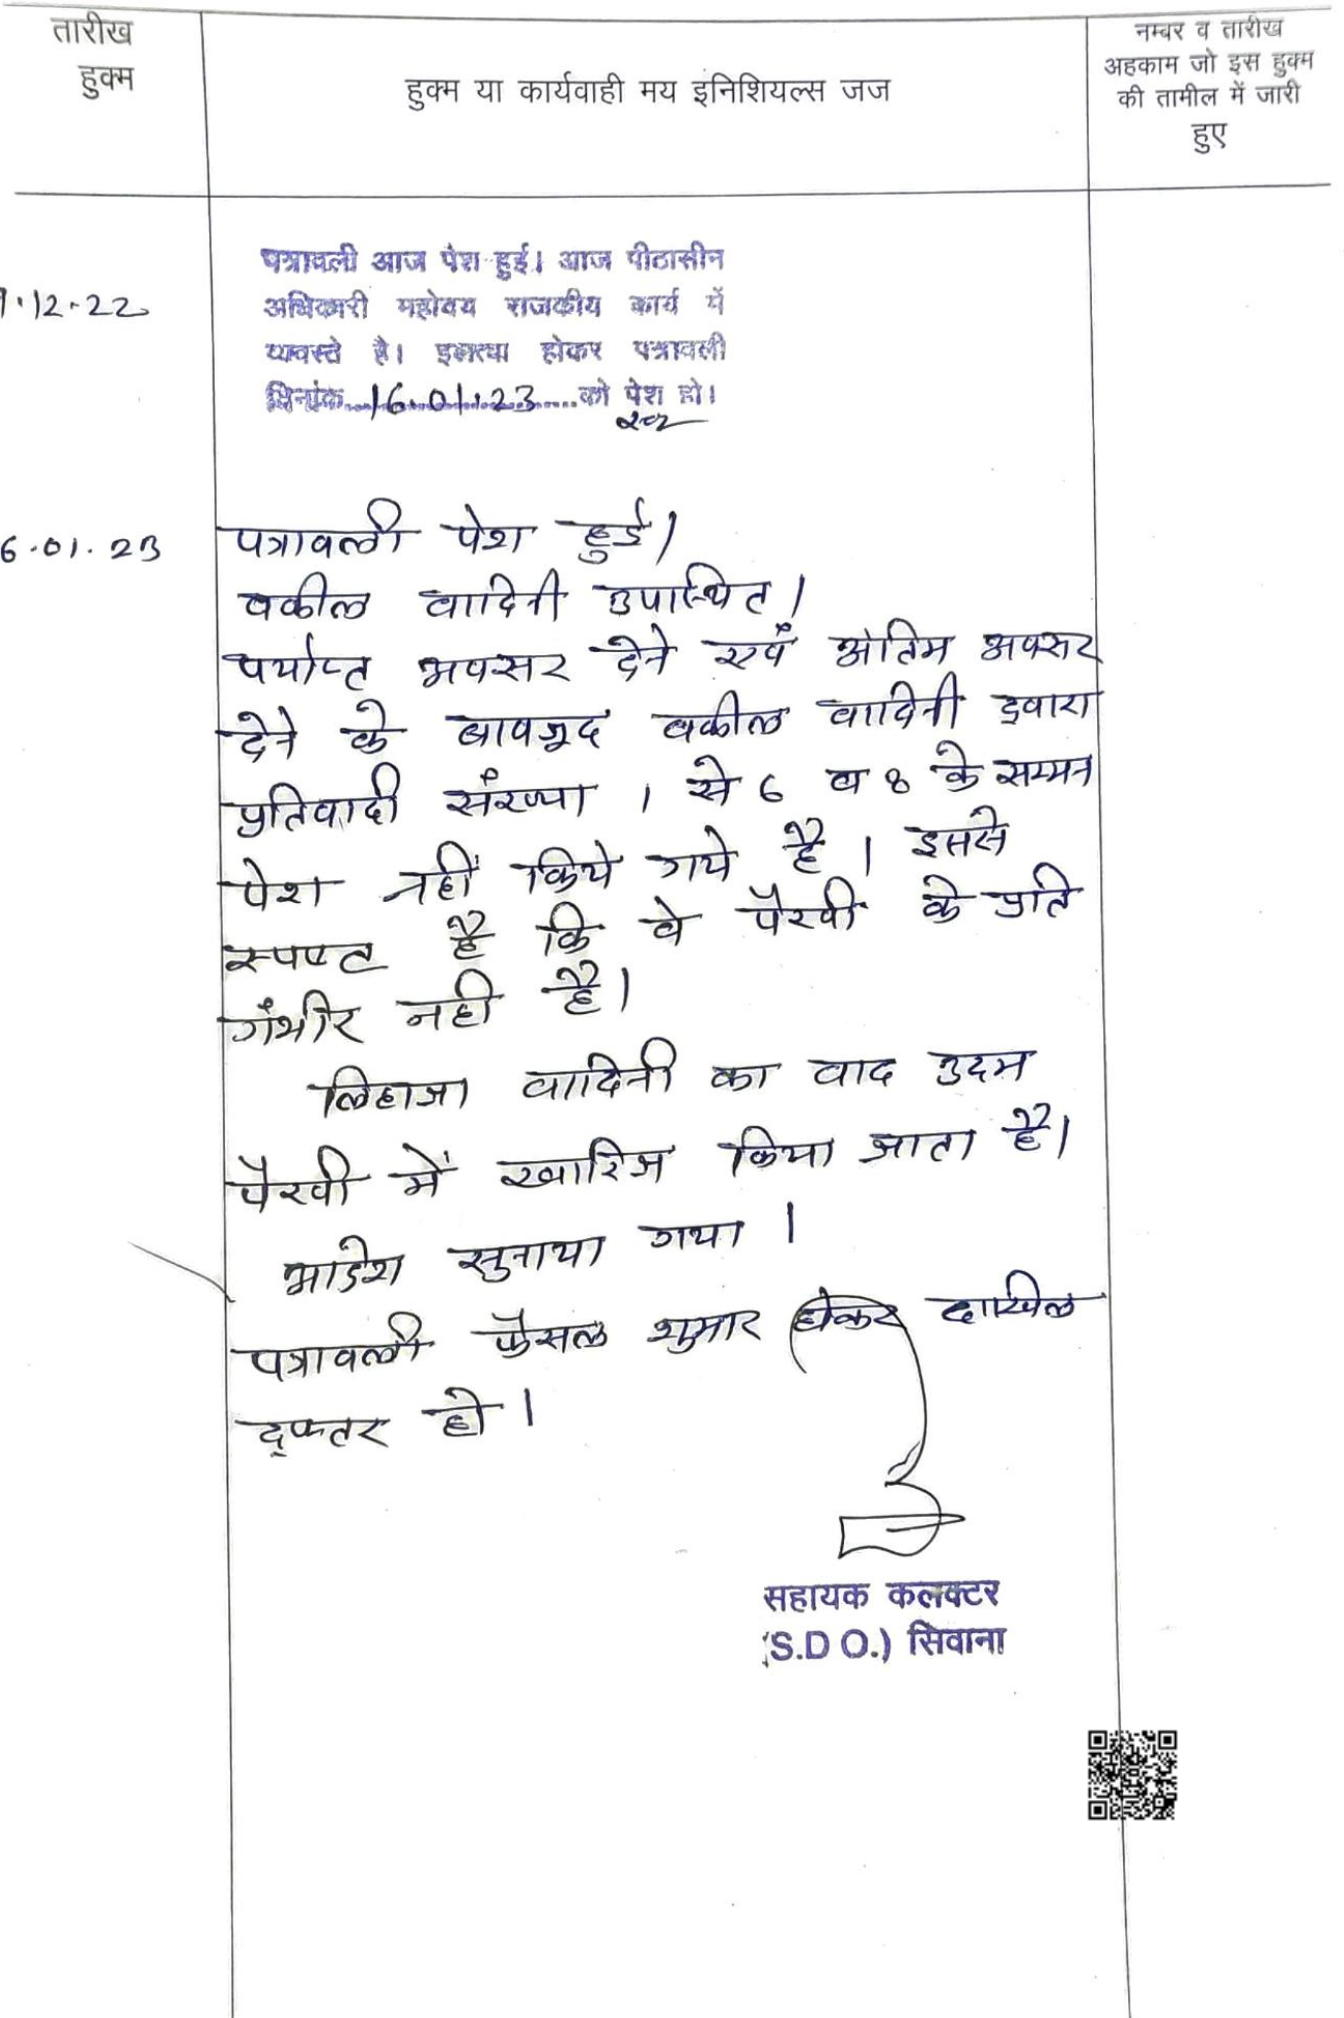 तारीख
हुक्म
हुक्म या कार्यवाही मय इनिशियल्स जज
नम्बर व तारीख
अहकाम जो इस हुक्म
की तामील में जारी
हुए
पत्रावली आज पेश हुई। आज पीठासीन
.12.22
अधिकारी महोदय राजकीय कार्य में
व्यवस्ते है। इलत्वा होकर पत्रावली
दिनांक....16.01.23....को पेश हो।
6.01.23
पत्रावली पेश हुई।
वकील वादिनी उपास्थित।
पर्याप्त अवसर देने एवं अंतिम अवसर
देने के बावजूद वकील वादिनी द्वारा
प्रतिवादी संख्या 1 से 6 व 8 के सम्मन
पेश नहीं किये गये है। इससे
स्पष्ट है कि वे पैरवी के प्रति
गंभीर नही है।
लिहाजा वादिनी का वाद उदम
पैरवी में खारिज किया जाता है।
आदेश सुनाया गया।
पत्रावली फैसल शुमार होकर दाखिल
दफ्तर हो।
सहायक कलक्टर
(S.D O.) सिवाना